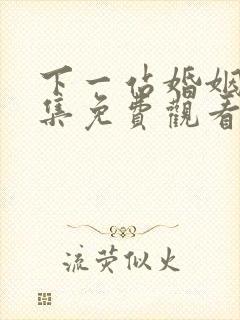 下一站婚姻
集免費觀看
流荧似火